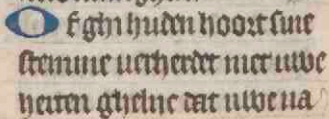 Of ghi huden hoort sine
stemme uerherdet niet uwe
herten ghelijc dat uwe ua